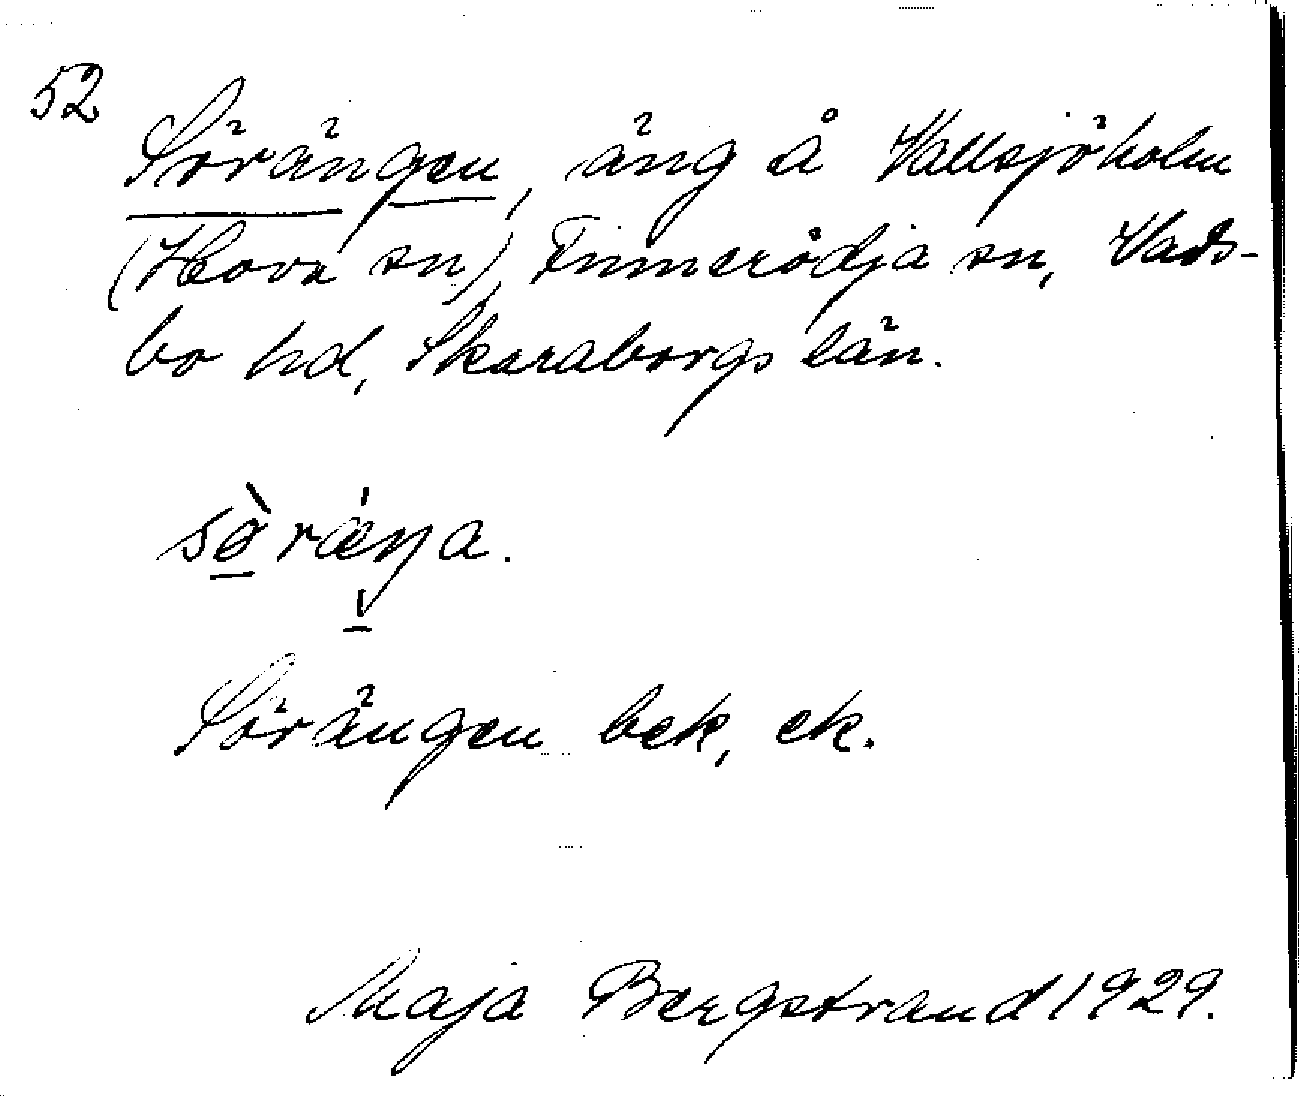 52
Sörängen, äng å Vallsjöholm
(Hova sn), Finnerödja sn, Vads-
bo hd, Skaraborgs län.
sö̀rǽŋa.
Sörängen bek, ek.
Maja Bergstrand 1929.